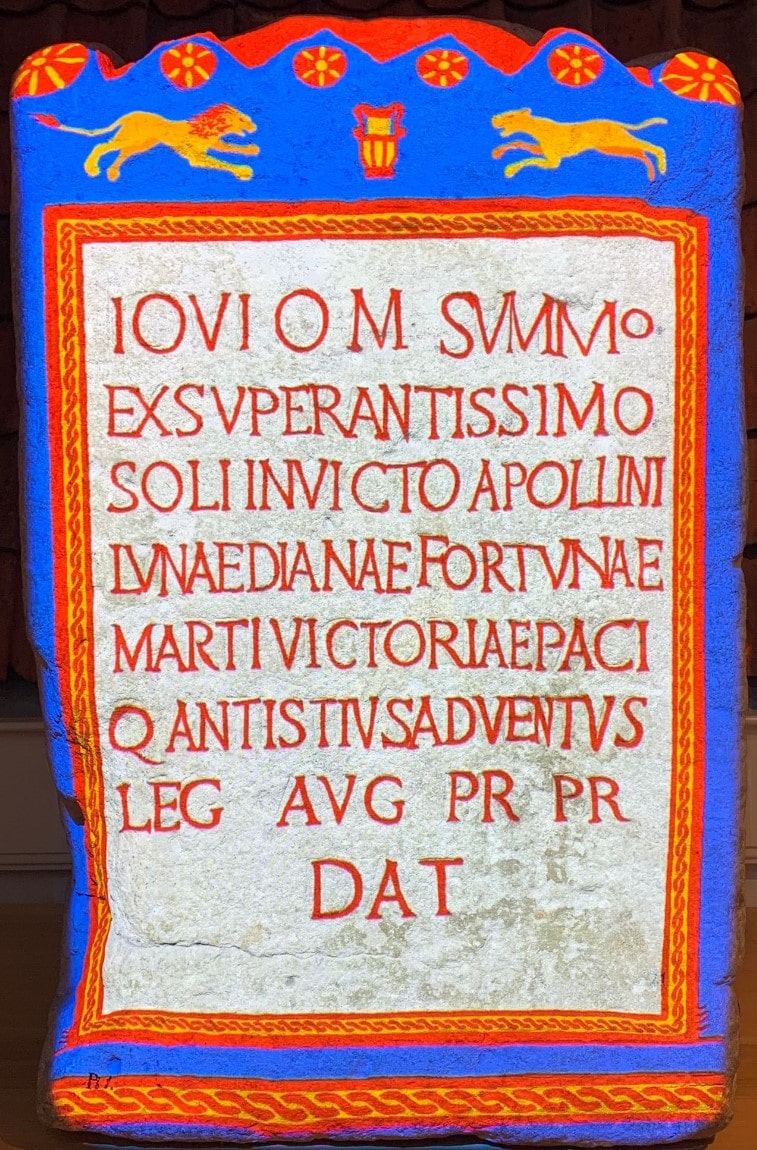 IOVI O M SVMMO
EXSVPERANTISSIMO
SOLI INVICTO APOLLINI
LVNAE DIANAE FORTVNAE
MARTI VICTORIAE PACI
Q ANTISTIVS ADVENTVS
LEG AVG PR PR
DAT